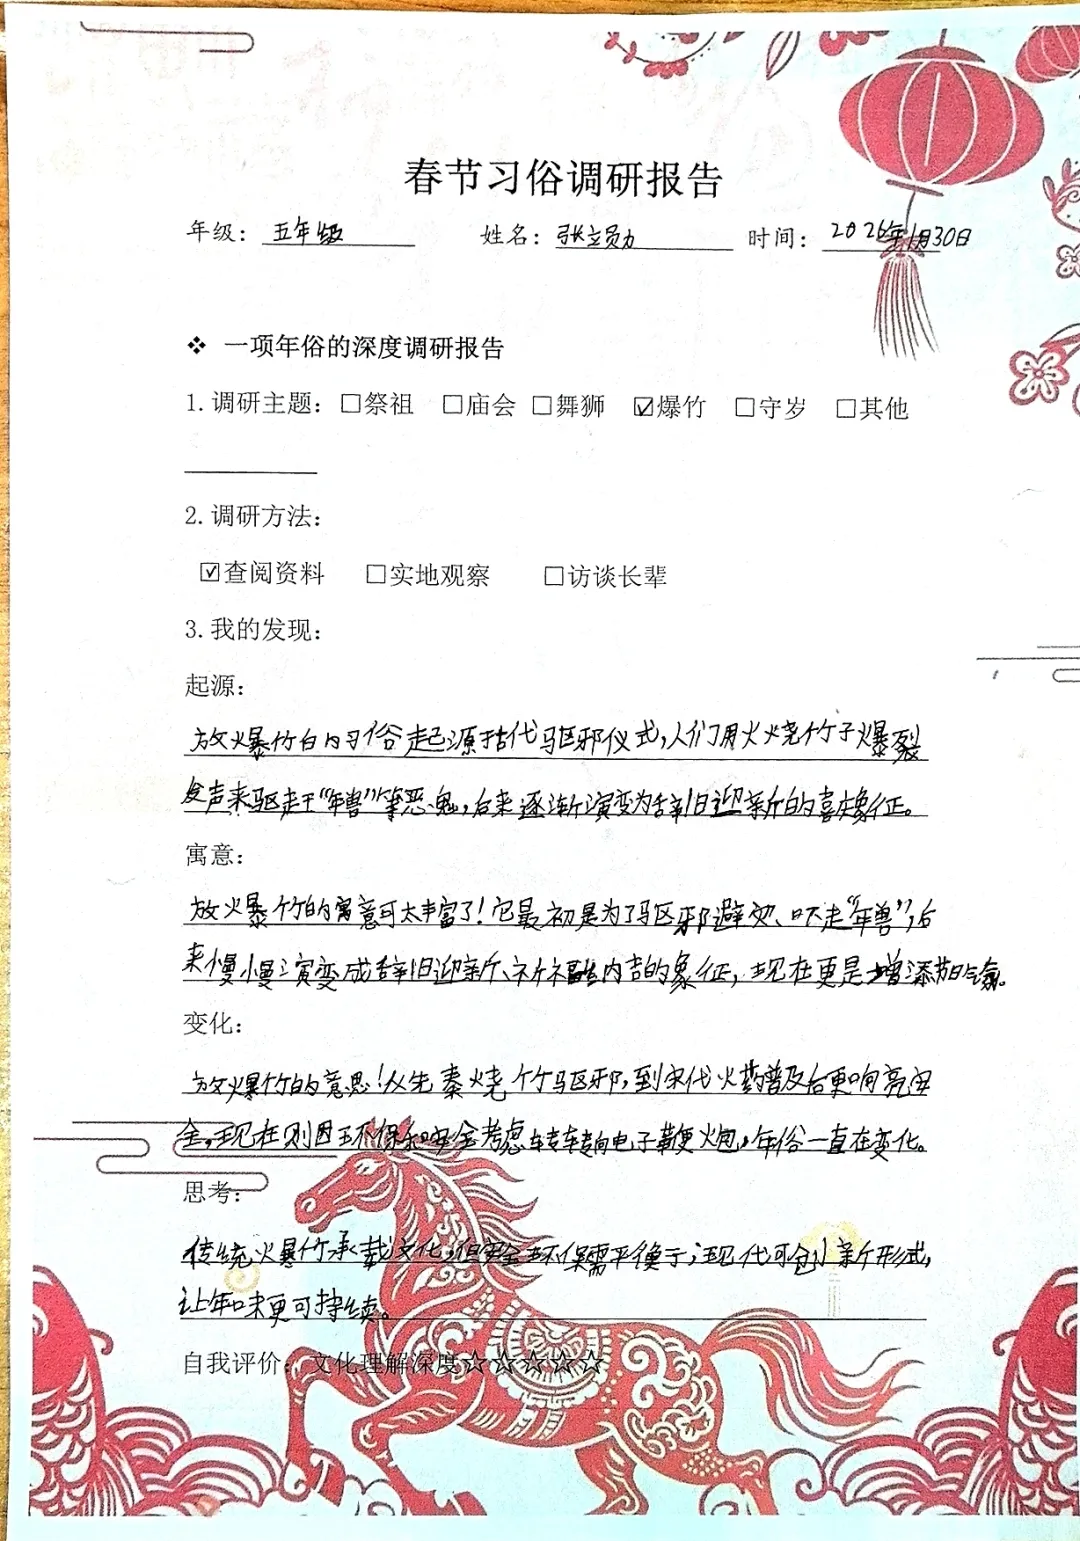 春节习俗调研报告
年级: 五年级 姓名: 张立勋 时间: 2026年1月30日
❖ 一项年俗的深度调研报告
1.调研主题: □祭祖 □庙会 □舞狮 ☑爆竹 □守岁 □其他
2.调研方法:
☑查阅资料 □实地观察 □访谈长辈
3.我的发现:
起源:
放爆竹的习俗起源于古代驱邪仪式,人们用火烧竹子爆裂
发声来驱走“年兽”等恶鬼,后来逐渐演变为辞旧迎新的喜象征。
寓意:
放爆竹的寓意可太丰富了!它最初是为了驱邪避 、吓走“年兽”,后
来慢慢演变成辞旧迎新、祈福纳吉的象征,现在更是增添节日气氛。
变化:
放爆竹的意思!从先秦烧竹驱邪,到宋代火药普及后更响亮安
全,现在则因环保和安全考虑转向电子鞭炮,年俗一直在变化。
思考:
传统爆竹承载文化,但安全环保需平衡 ;现代可创新形式,
让年味更可持续。
自我评价: 文化理解深度☆☆☆☆☆